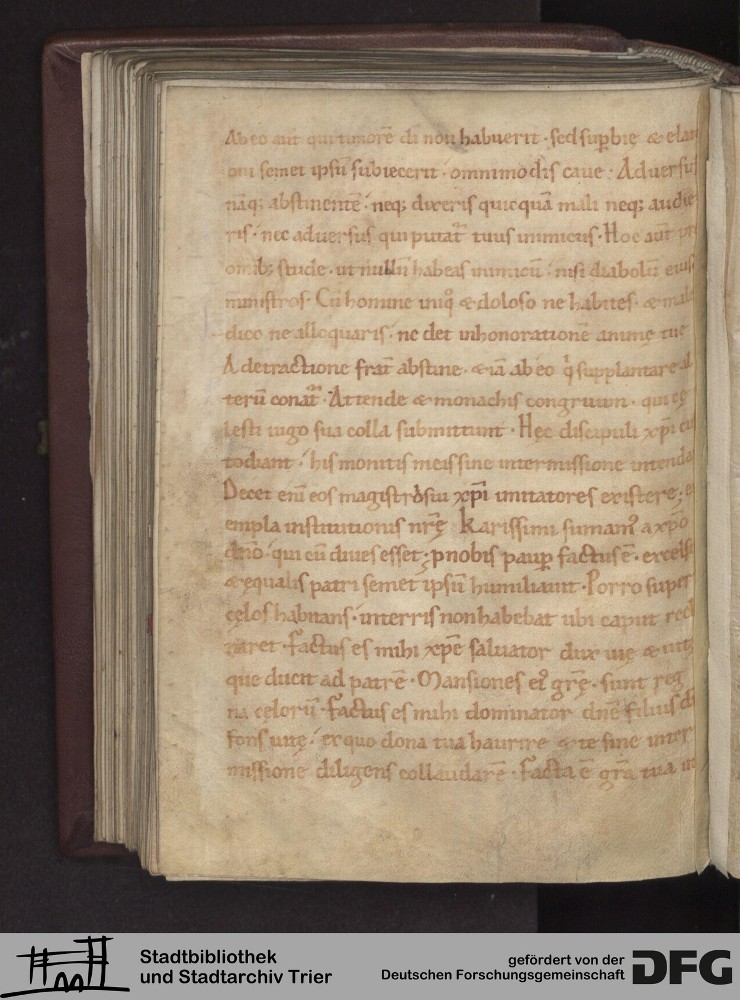 Ab eo aut̄ qui timorē di non habuerit · sed supbie & elati
oni semet ipsū subiecerit · ommimodis caue · Aduersus
nāq; abstinentē · neq; dixeris quicquā mali neq; audie
ris · nec aduersus qui putat̄ tuus inimicus · Hoc aut̄
omib; stude · ut nullū habeas inimicū · nisi diabolū eius
ministros · Cū homine iniq° & doloso ne habites · & male
dico ne alloquaris · ne det inhonorationē animę tuę
A detractione frat̄ abstine · & iā ab eo q supplantare al
terū conat̄ · Attende & monachis congruum · qui cę
lesti iugo sua colla submittunt · Hęc discipuli xp̄i cus
todiant · his monitis meis sine intermissione intenda
Decet eni eos magistro sui xp̄i imitatores existere; ex
empla institutionis nr̄ę karissimi sumam° a xp̄o
dn̄o · qui cū diues esset · p nobis paup factus ē · excels
& ęqualis patri semet ipsū humiliauit · Porro super
cęlos habitans · in terris non habebat ubi caput recli
naret · Factus es mihi xp̄e saluator dux uię & uitę
que ducit ad patrē · Mansiones ei° grę · sunt reg
na cęlorū · Factus es mihi dominator dn̄e filius di
fons uitę · ex quo dona tua haurire & te sine inter
missione diligens collaudarē · Facta ē gr̄a tua in
Stadtbibliothek
und Stadtarchiv Trier
gefördert von der
Deutschen Forschungsgemeinschaft
DFG